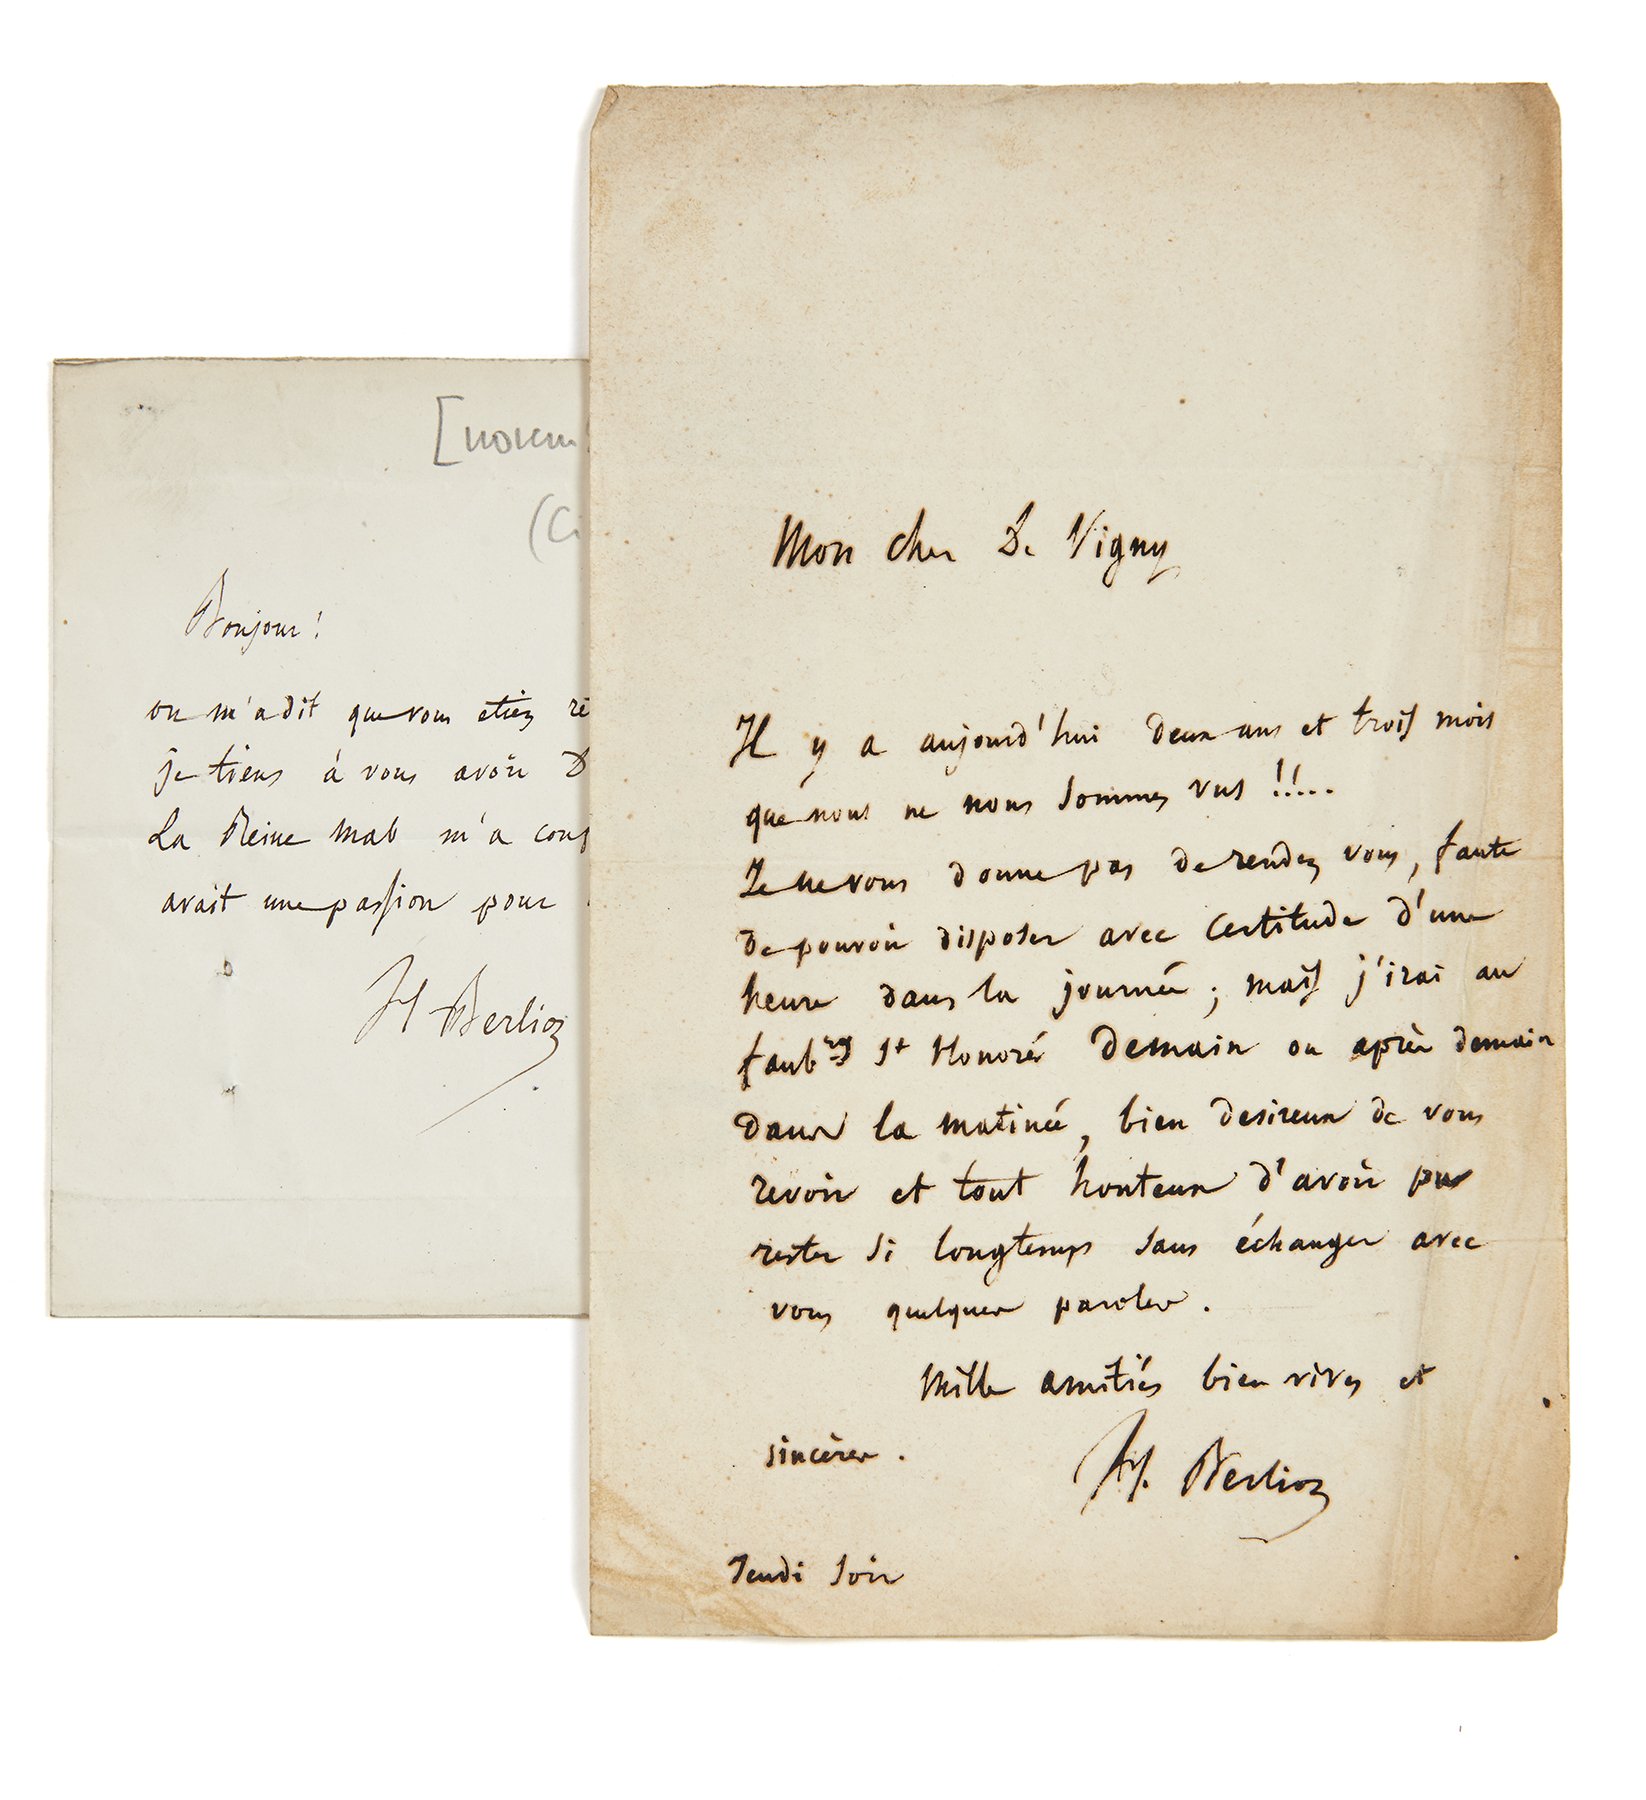 [novem
(C
Bonjour!
on m'a dit que vous etiez re
je tiens à vous avoir D
La Reine Mab m'a conf
avait une passion pour
H Berlioz
Mon cher De Vigny
Il y a aujourd'hui deux ans et trois mois
que nous ne nous sommes vus !!...
Je ne vous donne pas de rendez vous, faute
de pouvoir disposer avec certitude d'une
heure dans la journée ; mais j'irai au
faubrg St Honoré demain ou après demain
dans la matinée, bien desireux de vous
revoir et tout honteux d'avoir pu
rester si longtemps sans échanger avec
vous quelques paroles.
Mille amitiés bien vives et
sincères.
H. Berlioz
Jeudi soir